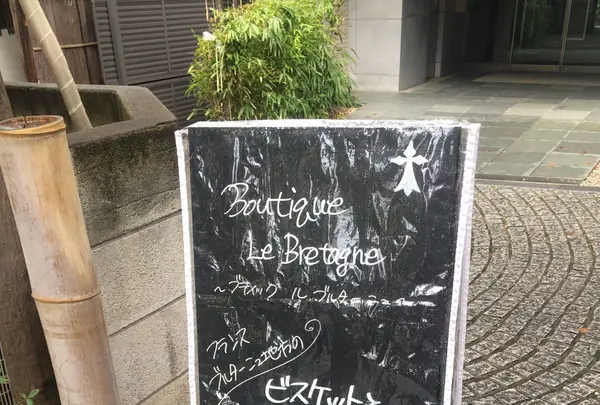 Boutique
Le Bretagne
～ブティック ル ブルターニュ～
フランス
ブルターニュ地方の
ビスケットと